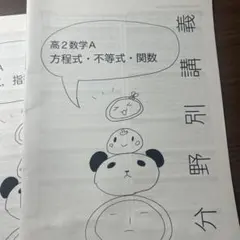 高2数学A
方程式・不等式・関数
分野別講義
指